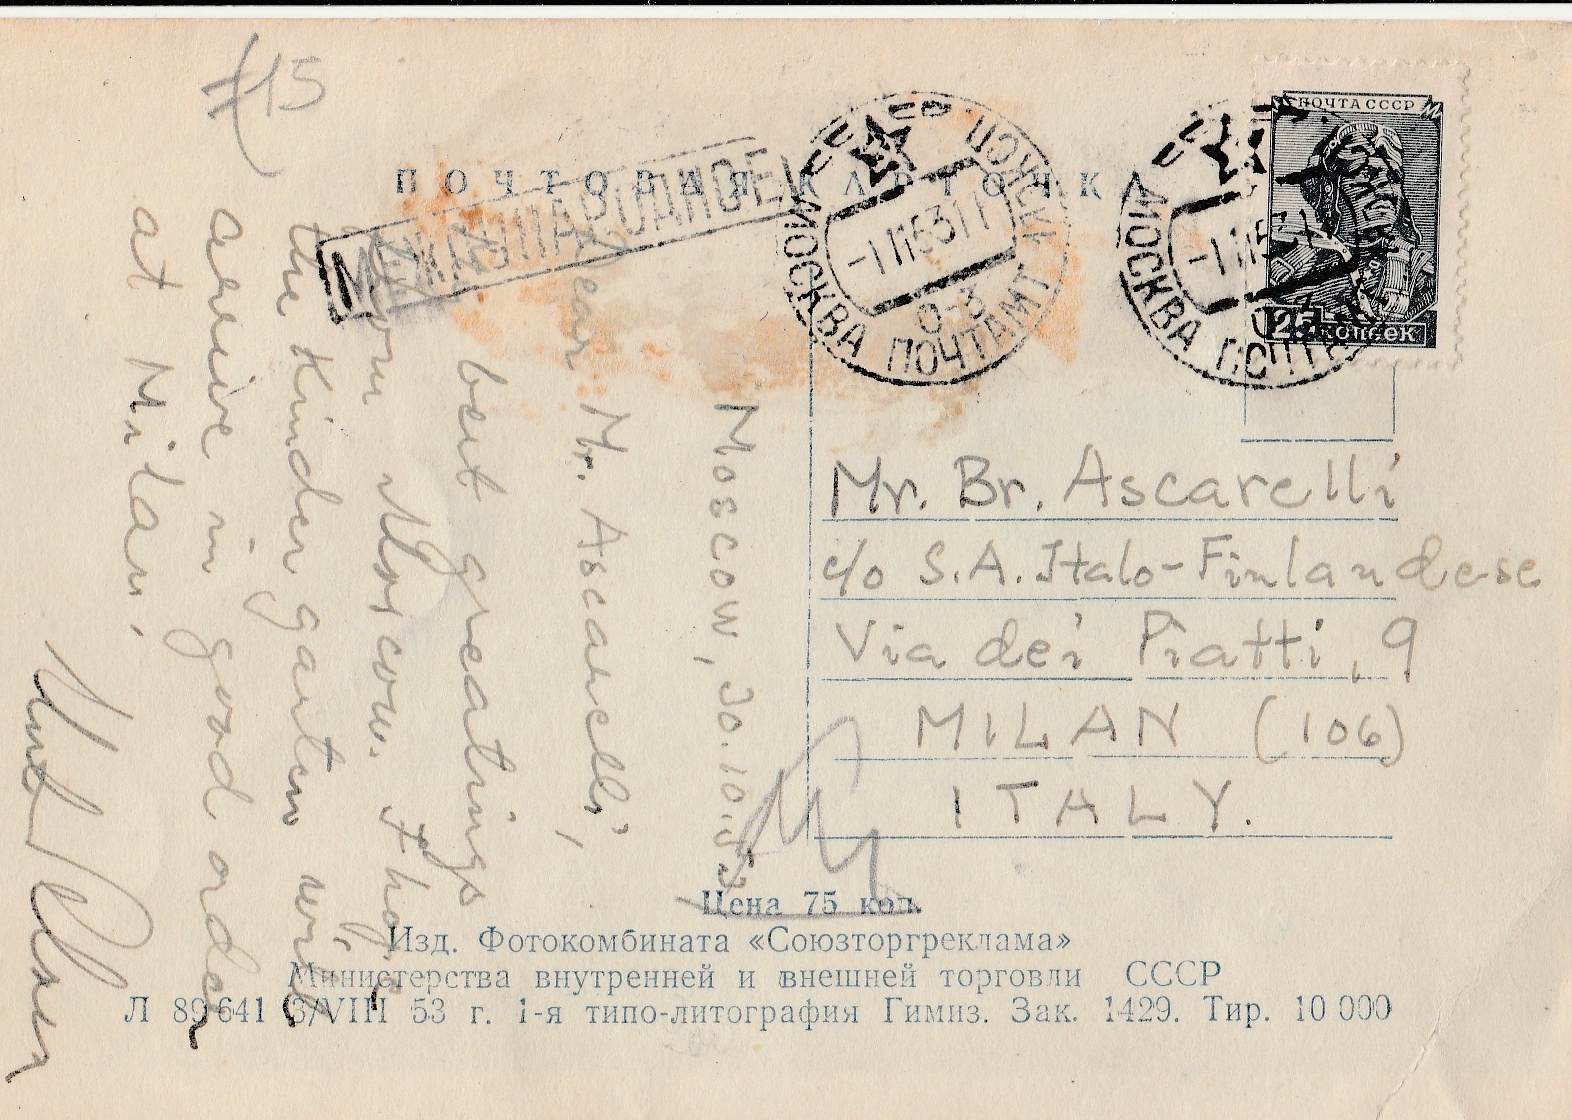 #15
ПОЧТОВАЯ КАРТОЧКА
МЕЖДУНАРОДНОЕ
МОСКВА ПОЧТАМТ
МОСКВА ПОЧТАМТ
ПОЧТА СССР
25 КОПЕЕК
Moscow, 30.10.53
Dear Mr. Ascarelli,
best greetings
from Moscow. I hope
the Kindergarten will
arrive in good order
at Milan.
Mr. Br. Ascarelli
c/o S.A. Italo-Finlandese
Via dei Piatti, 9
MILAN (106)
ITALY.
Цена 75 коп.
Изд. Фотокомбината «Союзторгреклама»
Министерства внутренней и внешней торговли СССР
Л 89641 3/VIII 53 г. 1-я типо-литография Гимиз. Зак. 1429. Тир. 10 000